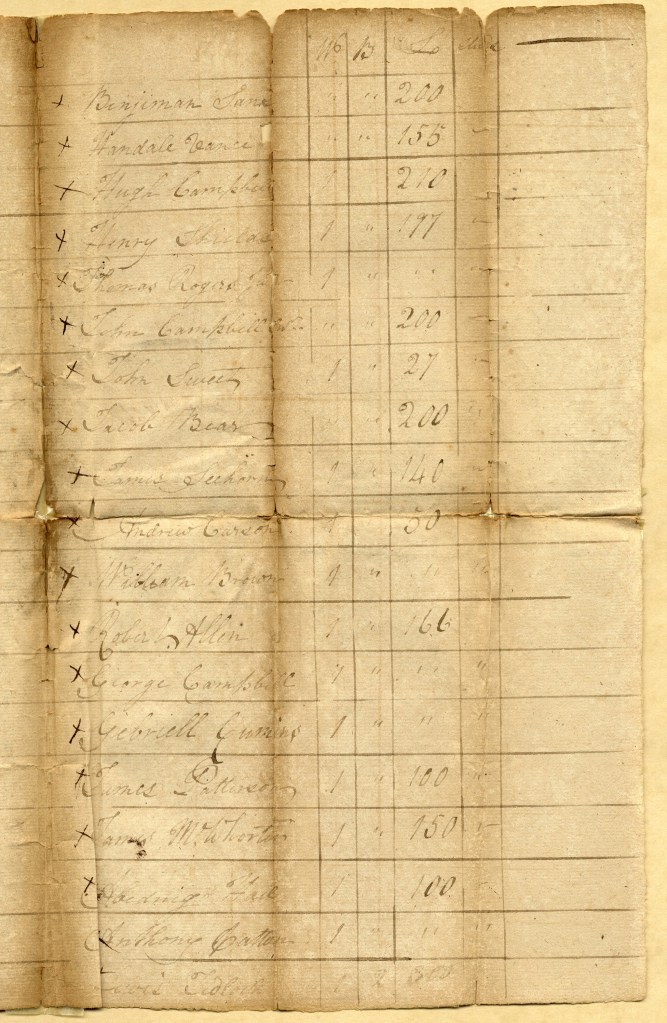 W P B P L
x Binjiman Lane " " 200
x Handale Vance " " 155 "
x Hugh Campbell 1 210 "
x Henry Shields 1 " 197 "
x Thomas Rogers Jur 1 " " "
x John Campbill " " 200 "
x John Sweet 1 " 27 "
x Jacob Bear " 200 "
x James Seehorn 1 " 140 "
x Andrew Carson 1 " 50 "
x William Brown 1 " " "
x Robert Allin 1 " 166
x George Campbell 1 " " "
x Gebriell Cumins 1 " "
x James Patterson 1 " 100 "
x James McWhorter 1 " 150 "
x Harding 1 " 100
Anthony Patton 1 " "
Lewis 1 2 300